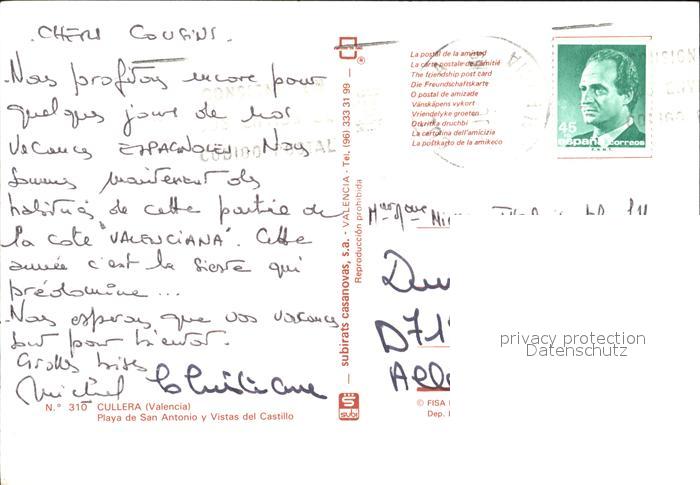 CHERS COUSINS.
Nous profitons encore pour
quelques jours de nos
vacances ESPAGNOLES. Nous
sommes maintenant des
habitués de cette partie de
la cote "VALENCIANA". Cette
année c'est la sieste qui
prédomine ...
Nous esperons que vos vacances
sont pour bientot.
Grosses bises
Michel Christiane
N.° 310 CULLERA (Valencia)
Playa de San Antonio y Vistas del Castillo
subirats casanovas, s.a. - VALENCIA - Tel. (96) 333 31 99 -
Reproducción prohibida
subi
La postal de la amistad
La carte postale de l'amitié
The friendship post card
Die Freundschaftskarte
O postal de amizade
Vänskapens vykort
Vriendelyke groeten
Otkritka druchbi
La cartolina dell'amicizia
La postkarto de la amikeco
45
españa correos
CODIGO POSTAL
D71
Alle
privacy protection
Datenschutz
© FISA
Dep.